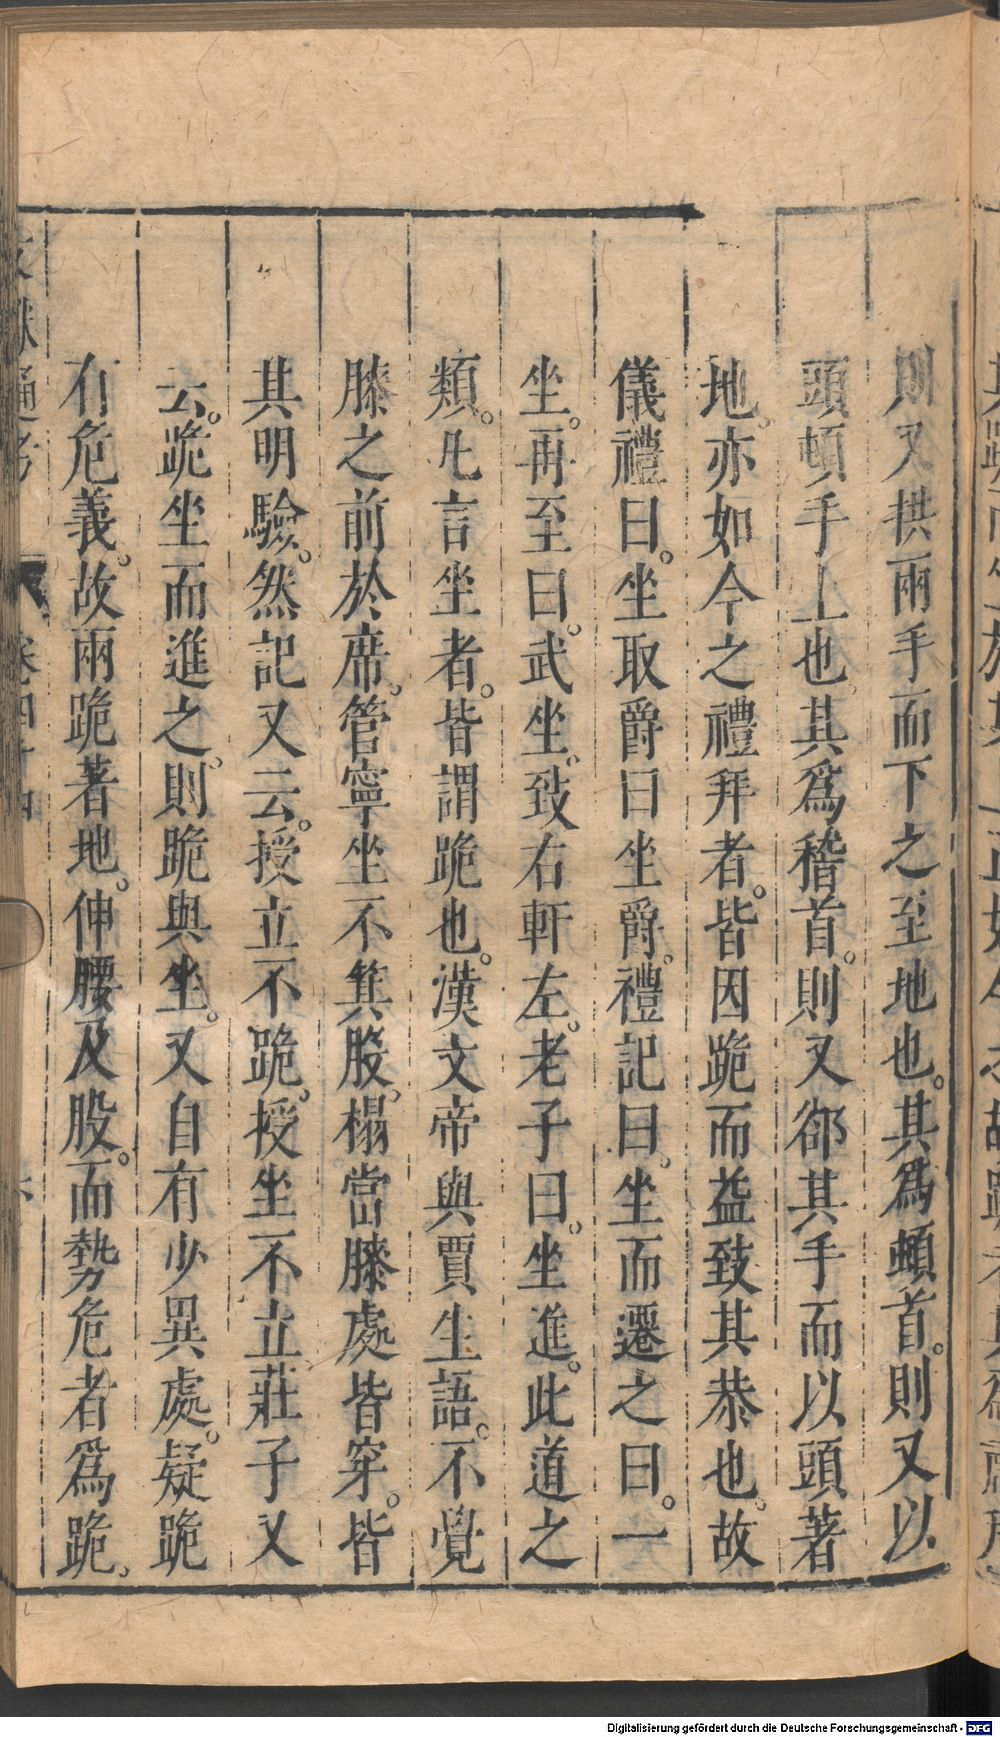 則又拱兩手而下之至地也。其爲頓首。則又以
頭頓手上也。其爲稽首。則又郤其手而以頭著
地。亦如今之禮拜者。皆因跪而益致其恭也。故
儀禮曰。坐取爵曰坐爵。禮記曰。坐而遷之曰。一
坐。再至曰。武坐。致右軒左。老子曰。坐進。此道之
類。凡言坐者。皆謂跪也。漢文帝與賈生語。不覺
膝之前於席。管寧坐不箕股。榻當膝處皆穿。皆
其明驗。然記又云。授立不跪。授坐不立莊子又
云。跪坐而進之。則跪與坐。又自有少異處。疑跪
有危義。故兩跪著地。伸腰及股。而勢危者爲跪。
文獻通考 卷四十四
Digitalisierung gefördert durch die Deutsche Forschungsgemeinschaft - DFG